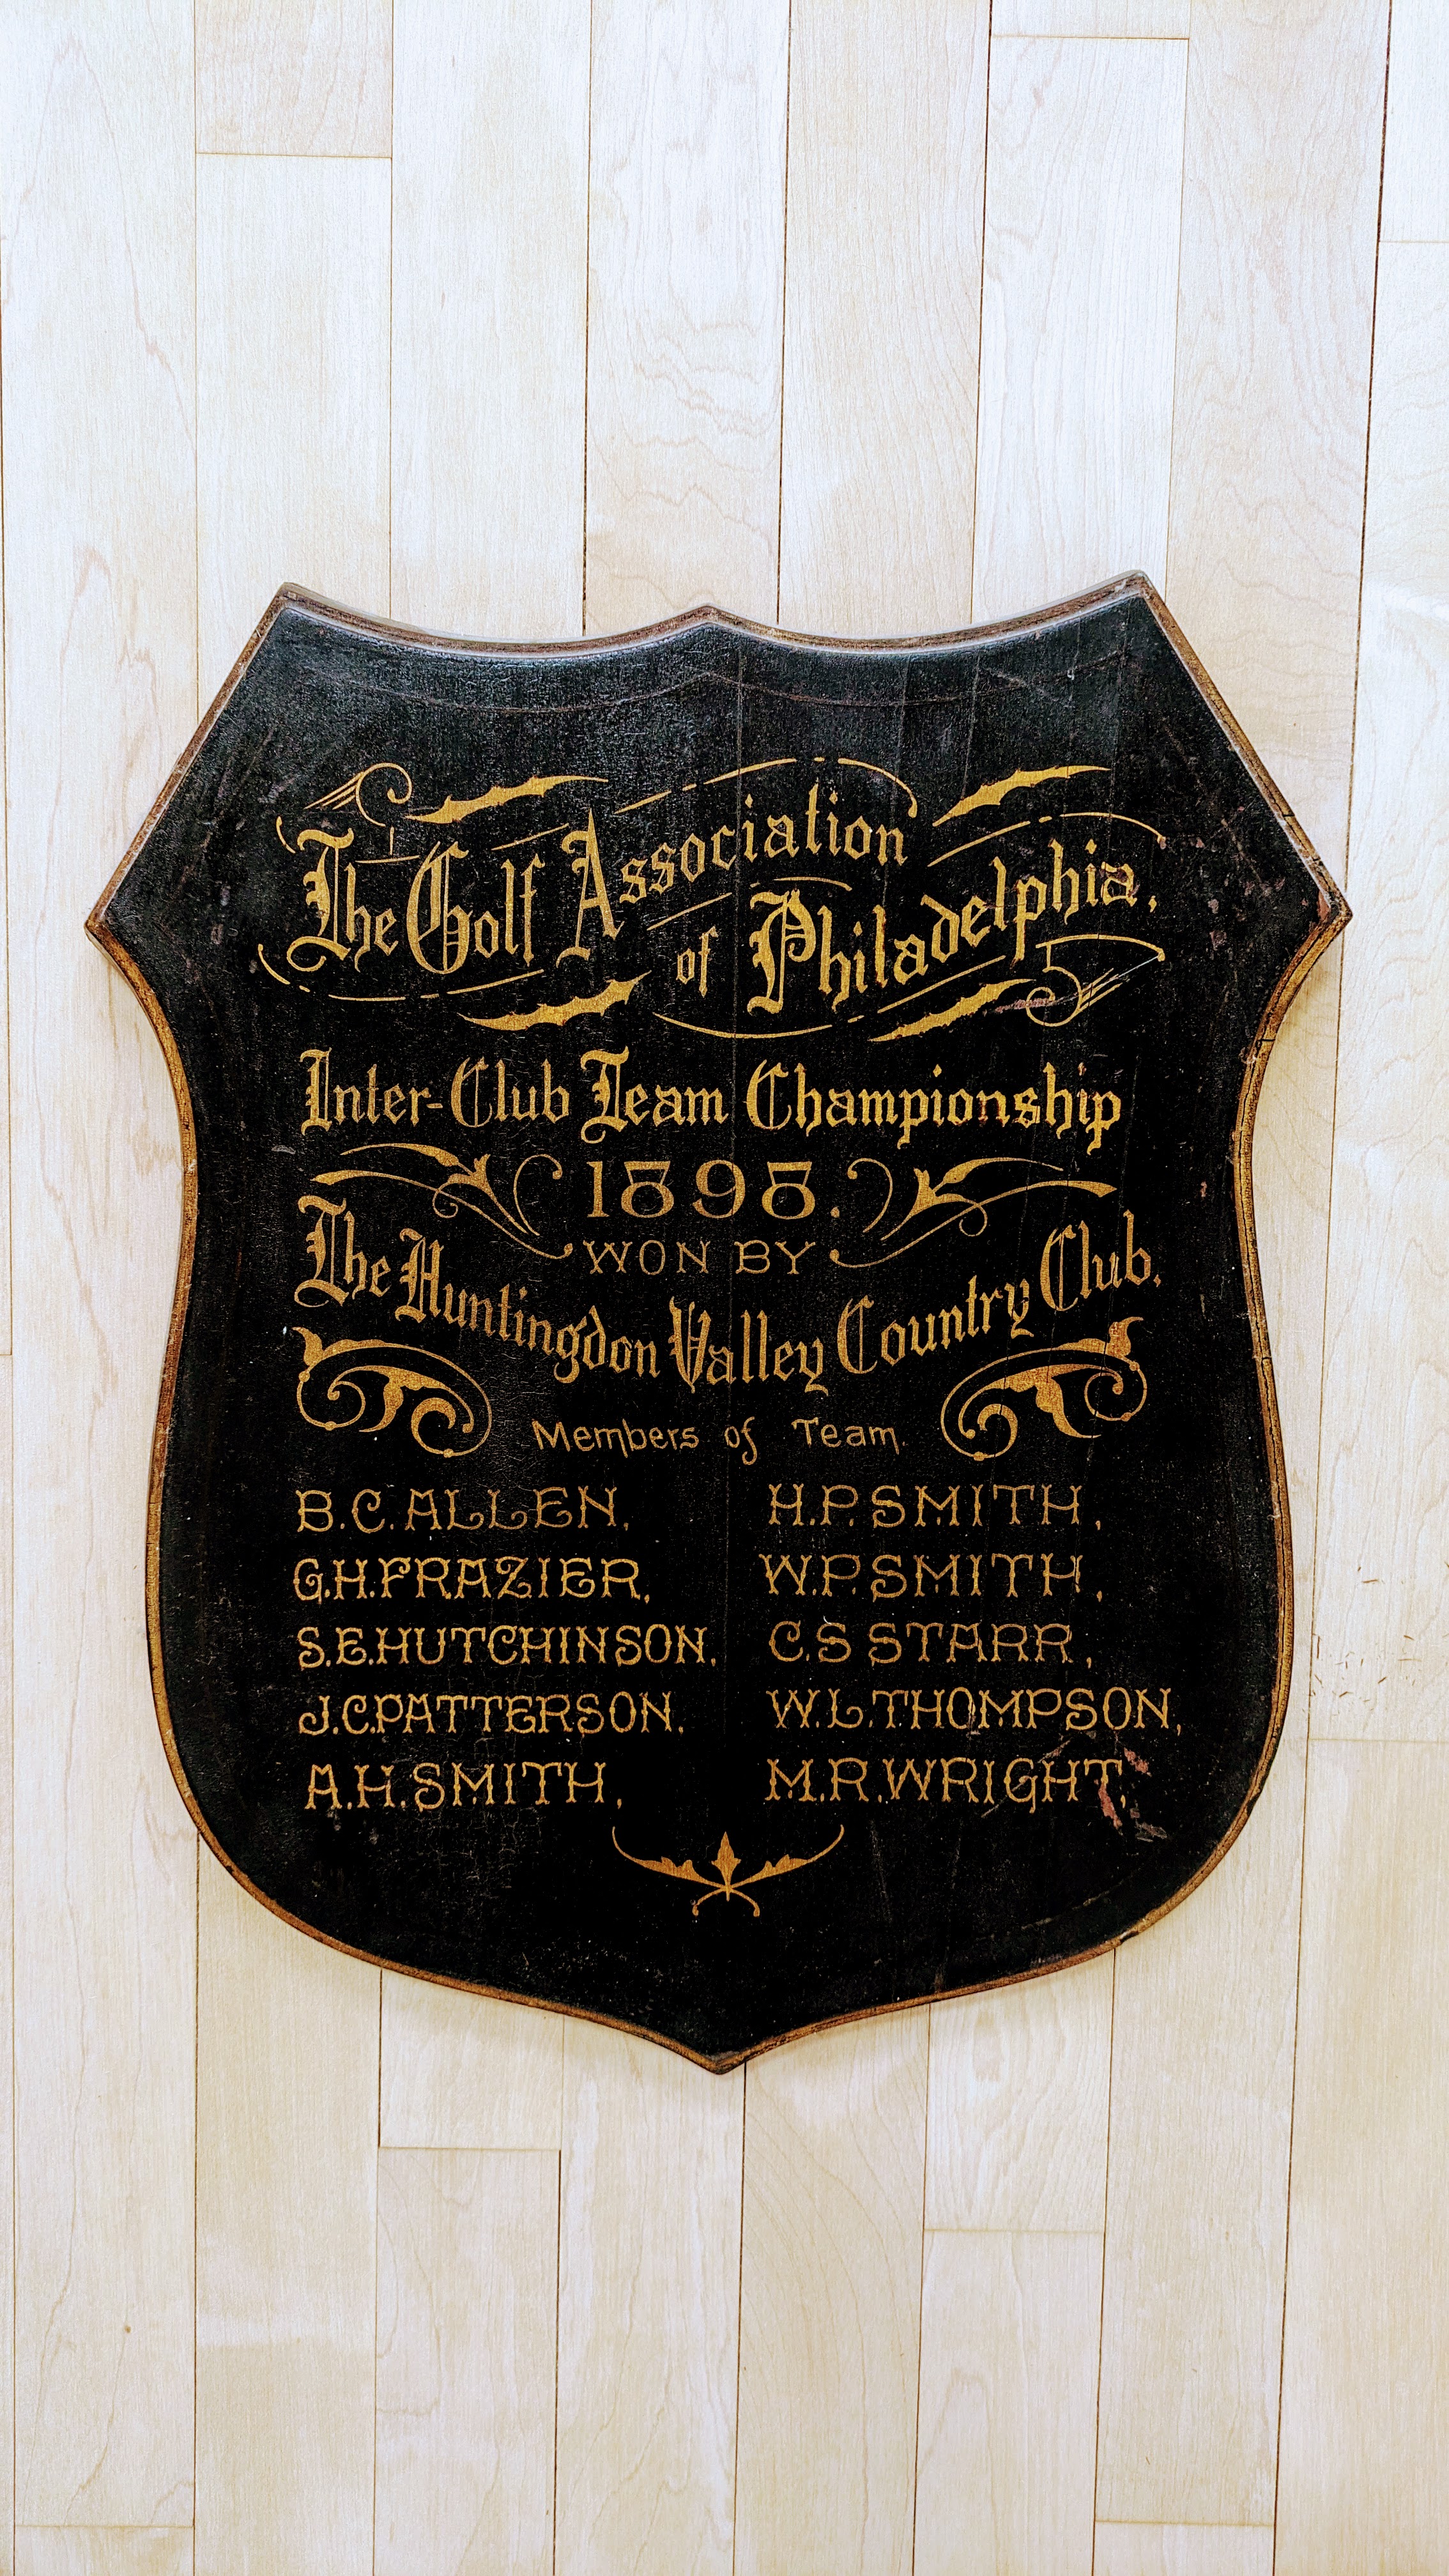 The Golf Association
of Philadelphia,
Inter-Club Team Championship
1898.
WON BY
The Huntingdon Valley Country Club.
Members of Team
B.C. ALLEN, H.P. SMITH,
G.H. FRAZIER, W.P. SMITH,
S.E. HUTCHINSON, C.S STARR,
J.C. PATTERSON, W.L. THOMPSON,
A.H. SMITH, M.R. WRIGHT,